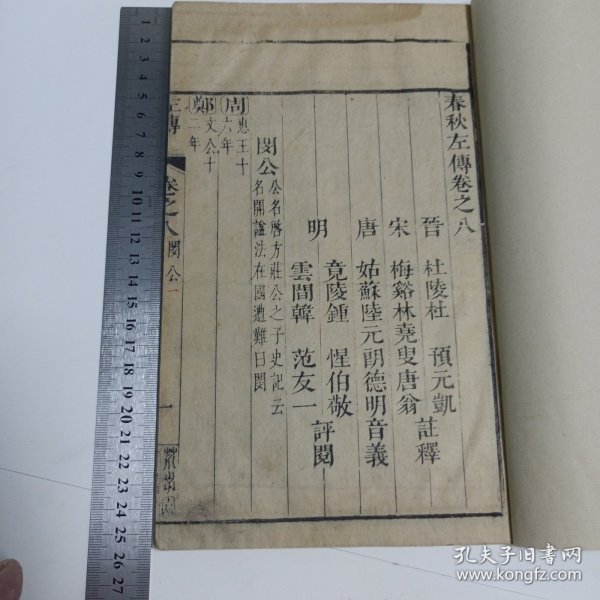 春秋左傳卷之八
晉 杜陵杜 預元凱
宋 梅谿林堯叟唐翁
註釋
唐 姑蘇陸元朗德明音義
明
竟陵鍾 惺伯敬
雲間韓 范友一
評閱
閔公
公名啓方莊公之子史記云
名開諡法在國遭難曰閔
周
惠王十
六年
鄭
文公十
二年
左傳
卷之八
閔公
一
1 2 3 4 5 6 7 8 9 10 11 12 13 14 15 16 17 18 19 20 21 22 23 24 25 26 27
孔夫子旧书网
kongfz.com